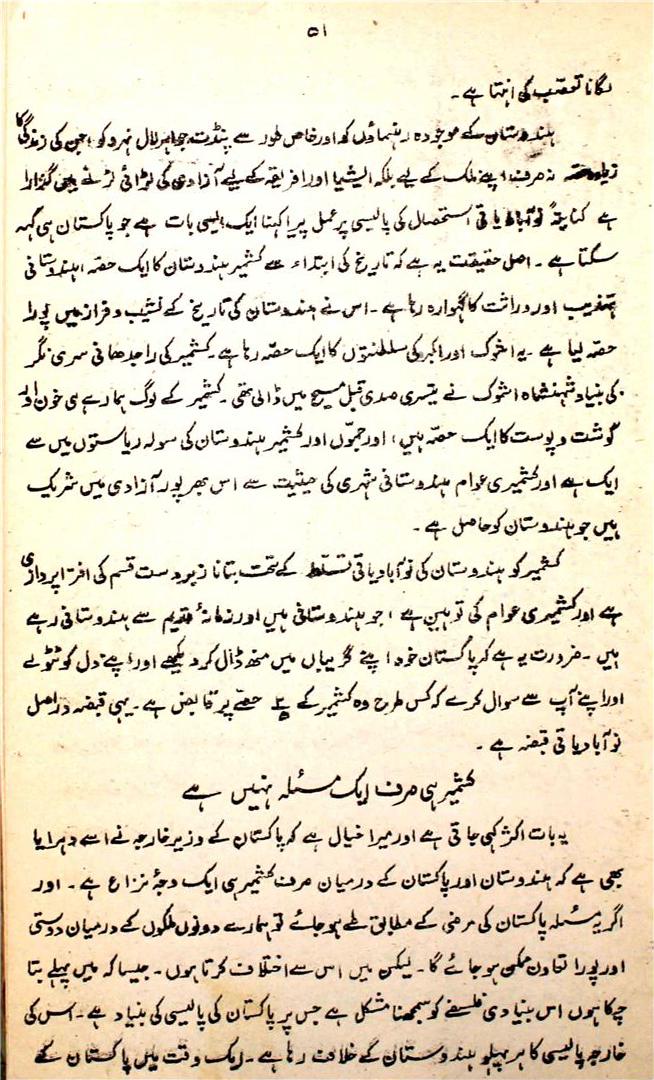 ۵۱
لگانا تعصّب کی انتہا ہے۔
ہندوستان کے موجودہ رہنماؤں کو اور خاص طور سے پنڈت جواہر لال نہرو کو، جن کی زندگی کا
زیادہ حصّہ نہ صرف اپنے ملک کے لیے بلکہ ایشیا اور افریقہ کے لیے آزادی کی لڑائی لڑنے میں گزارا
ہے کنایتہً نوآبادیاتی استحصال کی پالیسی پر عمل پیرا کہنا ایک ایسی بات ہے جو پاکستان ہی کہہ
سکتا ہے۔ اصل حقیقت یہ ہے کہ تاریخ کی ابتداء سے کشمیر ہندوستان کا ایک حصّہ، ہندوستانی
تہذیب اور وراثت کا گہوارہ رہا ہے۔ اس نے ہندوستان کی تاریخ کے نشیب و فراز میں پورا
حصّہ لیا ہے۔ یہ اشوک اور اکبر کی سلطنتوں کا ایک حصّہ رہا ہے۔ کشمیر کی راجدھانی سری نگر
کی بنیاد شہنشاہ اشوک نے تیسری صدی قبل مسیح میں ڈالی تھی۔ کشمیر کے لوگ ہمارے ہی خون اور
گوشت و پوست کا ایک حصّہ ہیں، اور جموّں اور کشمیر ہندوستان کی سولہ ریاستوں میں سے
ایک ہے اور کشمیری عوام ہندوستانی شہری کی حیثیت سے اس بھرپور آزادی میں شریک
ہیں جو ہندوستان کو حاصل ہے۔
کشمیر کو ہندوستان کی نوآبادیاتی تسلّط کے تحت بتانا زبردست قسم کی افترا پردازی
ہے اور کشمیری عوام کی توہین ہے، جو ہندوستانی ہیں اور زمانۂ قدیم سے ہندوستانی رہے
ہیں۔ ضرورت یہ ہے کہ پاکستان خود اپنے گریباں میں منھ ڈال کر دیکھے اور اپنے دل کو ٹٹولے
اور اپنے آپ سے سوال کرے کہ کس طرح وہ کشمیر کے حصّے پر قابض ہے۔ یہی قبضہ دراصل
نوآبادیاتی قبضہ ہے۔
کشمیر ہی صرف ایک مسئلہ نہیں ہے
یہ بات اکثر کہی جاتی ہے اور میرا خیال ہے کہ پاکستان کے وزیر خارجہ نے اسے دہرایا
بھی ہے کہ ہندوستان اور پاکستان کے درمیان صرف کشمیر ہی ایک وجۂ نزاع ہے۔ اور
اگر یہ مسئلہ پاکستان کی مرضی کے مطابق طے ہو جائے تو ہمارے دونوں ملکوں کے درمیان دوستی
اور پورا تعاون ممکن ہو جائے گا۔ لیکن میں اس سے اختلاف کرتا ہوں۔ جیسا کہ میں پہلے بتا
چکا ہوں اس بنیادی فلسفے کو سمجھنا مشکل ہے جس پر پاکستان کی پالیسی کی بنیاد ہے۔ اس کی
خارجہ پالیسی کا ہر پہلو ہندوستان کے خلاف رہا ہے۔ ایک وقت میں پاکستان کے